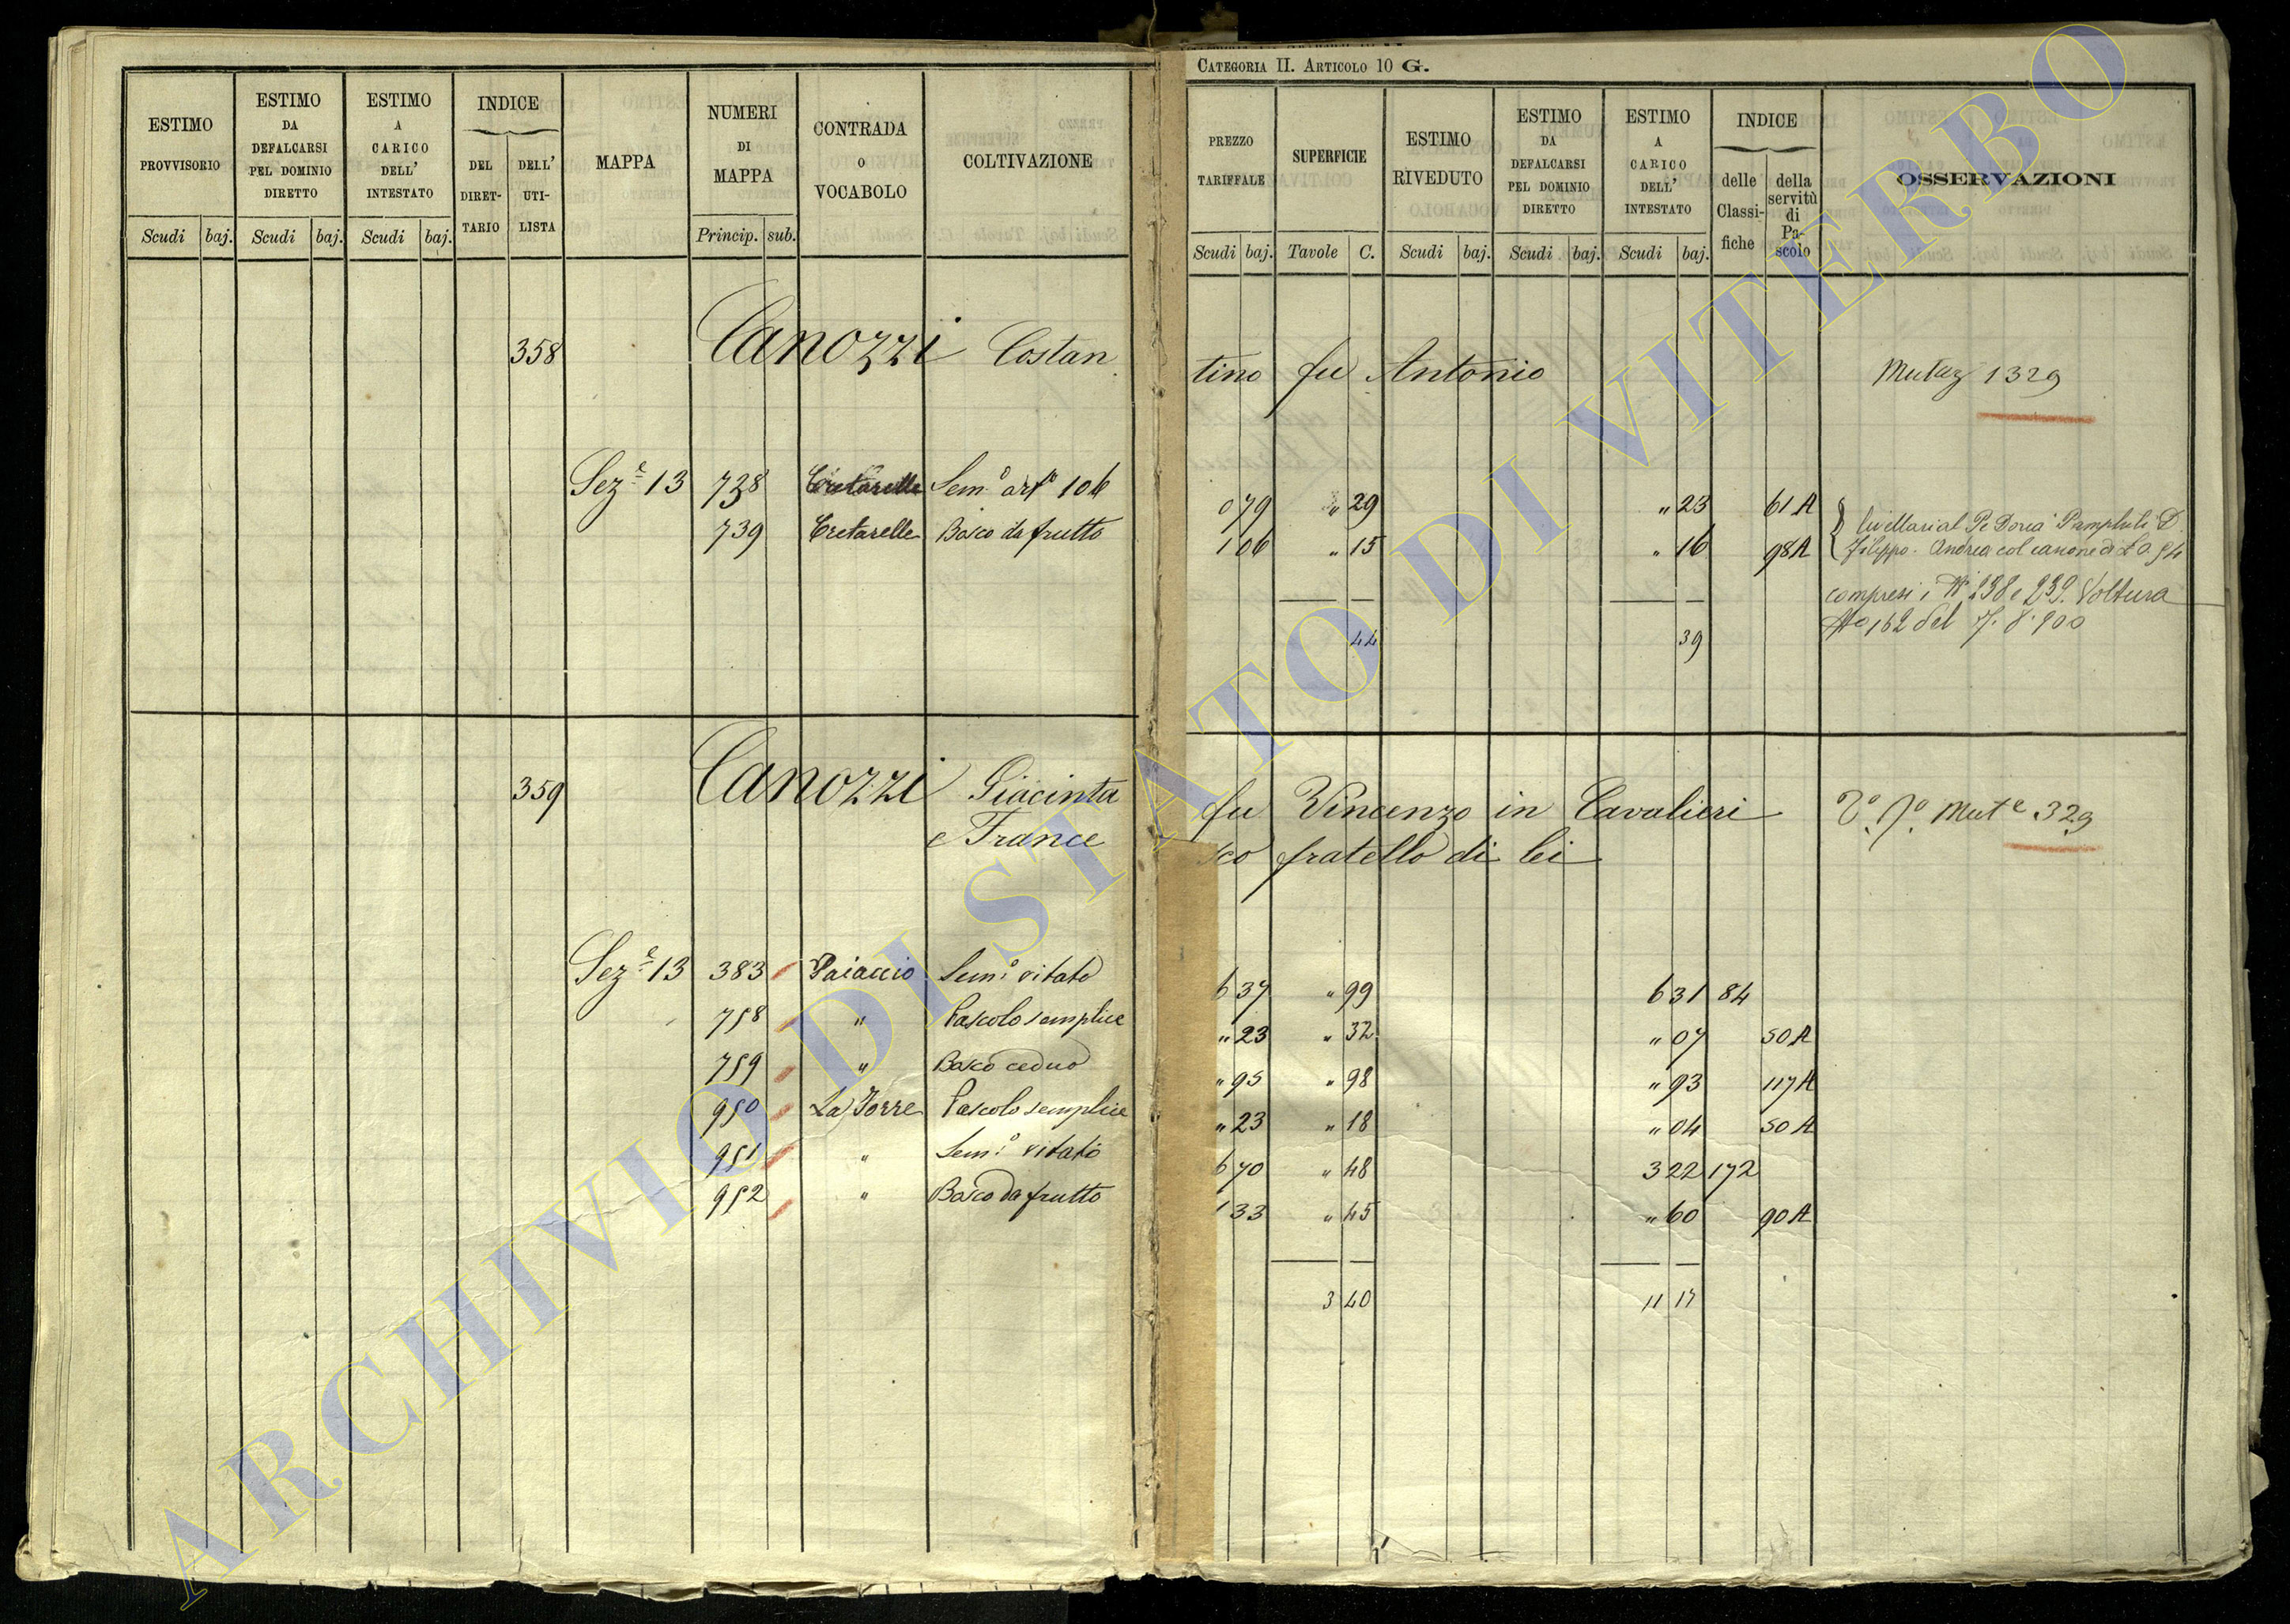 CATEGORIA II. ARTICOLO 10 G.
ESTIMO PROVVISORIO Scudi baj.
ESTIMO DA DEFALCARSI PEL DOMINIO DIRETTO Scudi baj.
ESTIMO A CARICO DELL' INTESTATO Scudi baj.
INDICE DEL DIRET-TARIO DELL' UTI-LISTA
MAPPA
NUMERI DI MAPPA Princip. sub.
CONTRADA O VOCABOLO
COLTIVAZIONE
PREZZO TARIFFALE Scudi baj.
SUPERFICIE Tavole C.
ESTIMO RIVEDUTO Scudi baj.
ESTIMO DA DEFALCARSI PEL DOMINIO DIRETTO Scudi baj.
ESTIMO A CARICO DELL' INTESTATO Scudi baj.
INDICE delle Classi-fiche della servitù di Pa-scolo
OSSERVAZIONI
358 Canozzi Costan tino fu Antonio Mutaz 1329
Sez.e 13 738 Cretarelle Sem.o art.o 106 079 " 29 " 23 61 A
739 Cretarelle Bosco da frutto 106 " 15 " 16 98 A
livellari al Pe Doria Pamphili D.
Filippo Andrea col canone di
compresi i Ni 238 e 239. Voltura
162 del 7. 8. 900
44 39
359 Canozzi Giacinta fu Vincenzo in Cavalieri Mut.e 329
e France sco fratello di lei
Sez.e 13 383 Paiaccio Sem.o vitato 6 37 " 99 6 31 84
758 " Pascolo semplice " 23 " 32 " 07 50 A
759 " Bosco ceduo " 95 " 98 " 93 117 A
950 La Torre Pascolo semplice " 23 " 18 " 04 50 A
951 " Sem.o vitato 6 70 " 48 3 22 172
952 " Bosco da frutto 1 33 " 45 " 60 90 A
3 40 11 17
ARCHIVIO DI STATO DI VITERBO